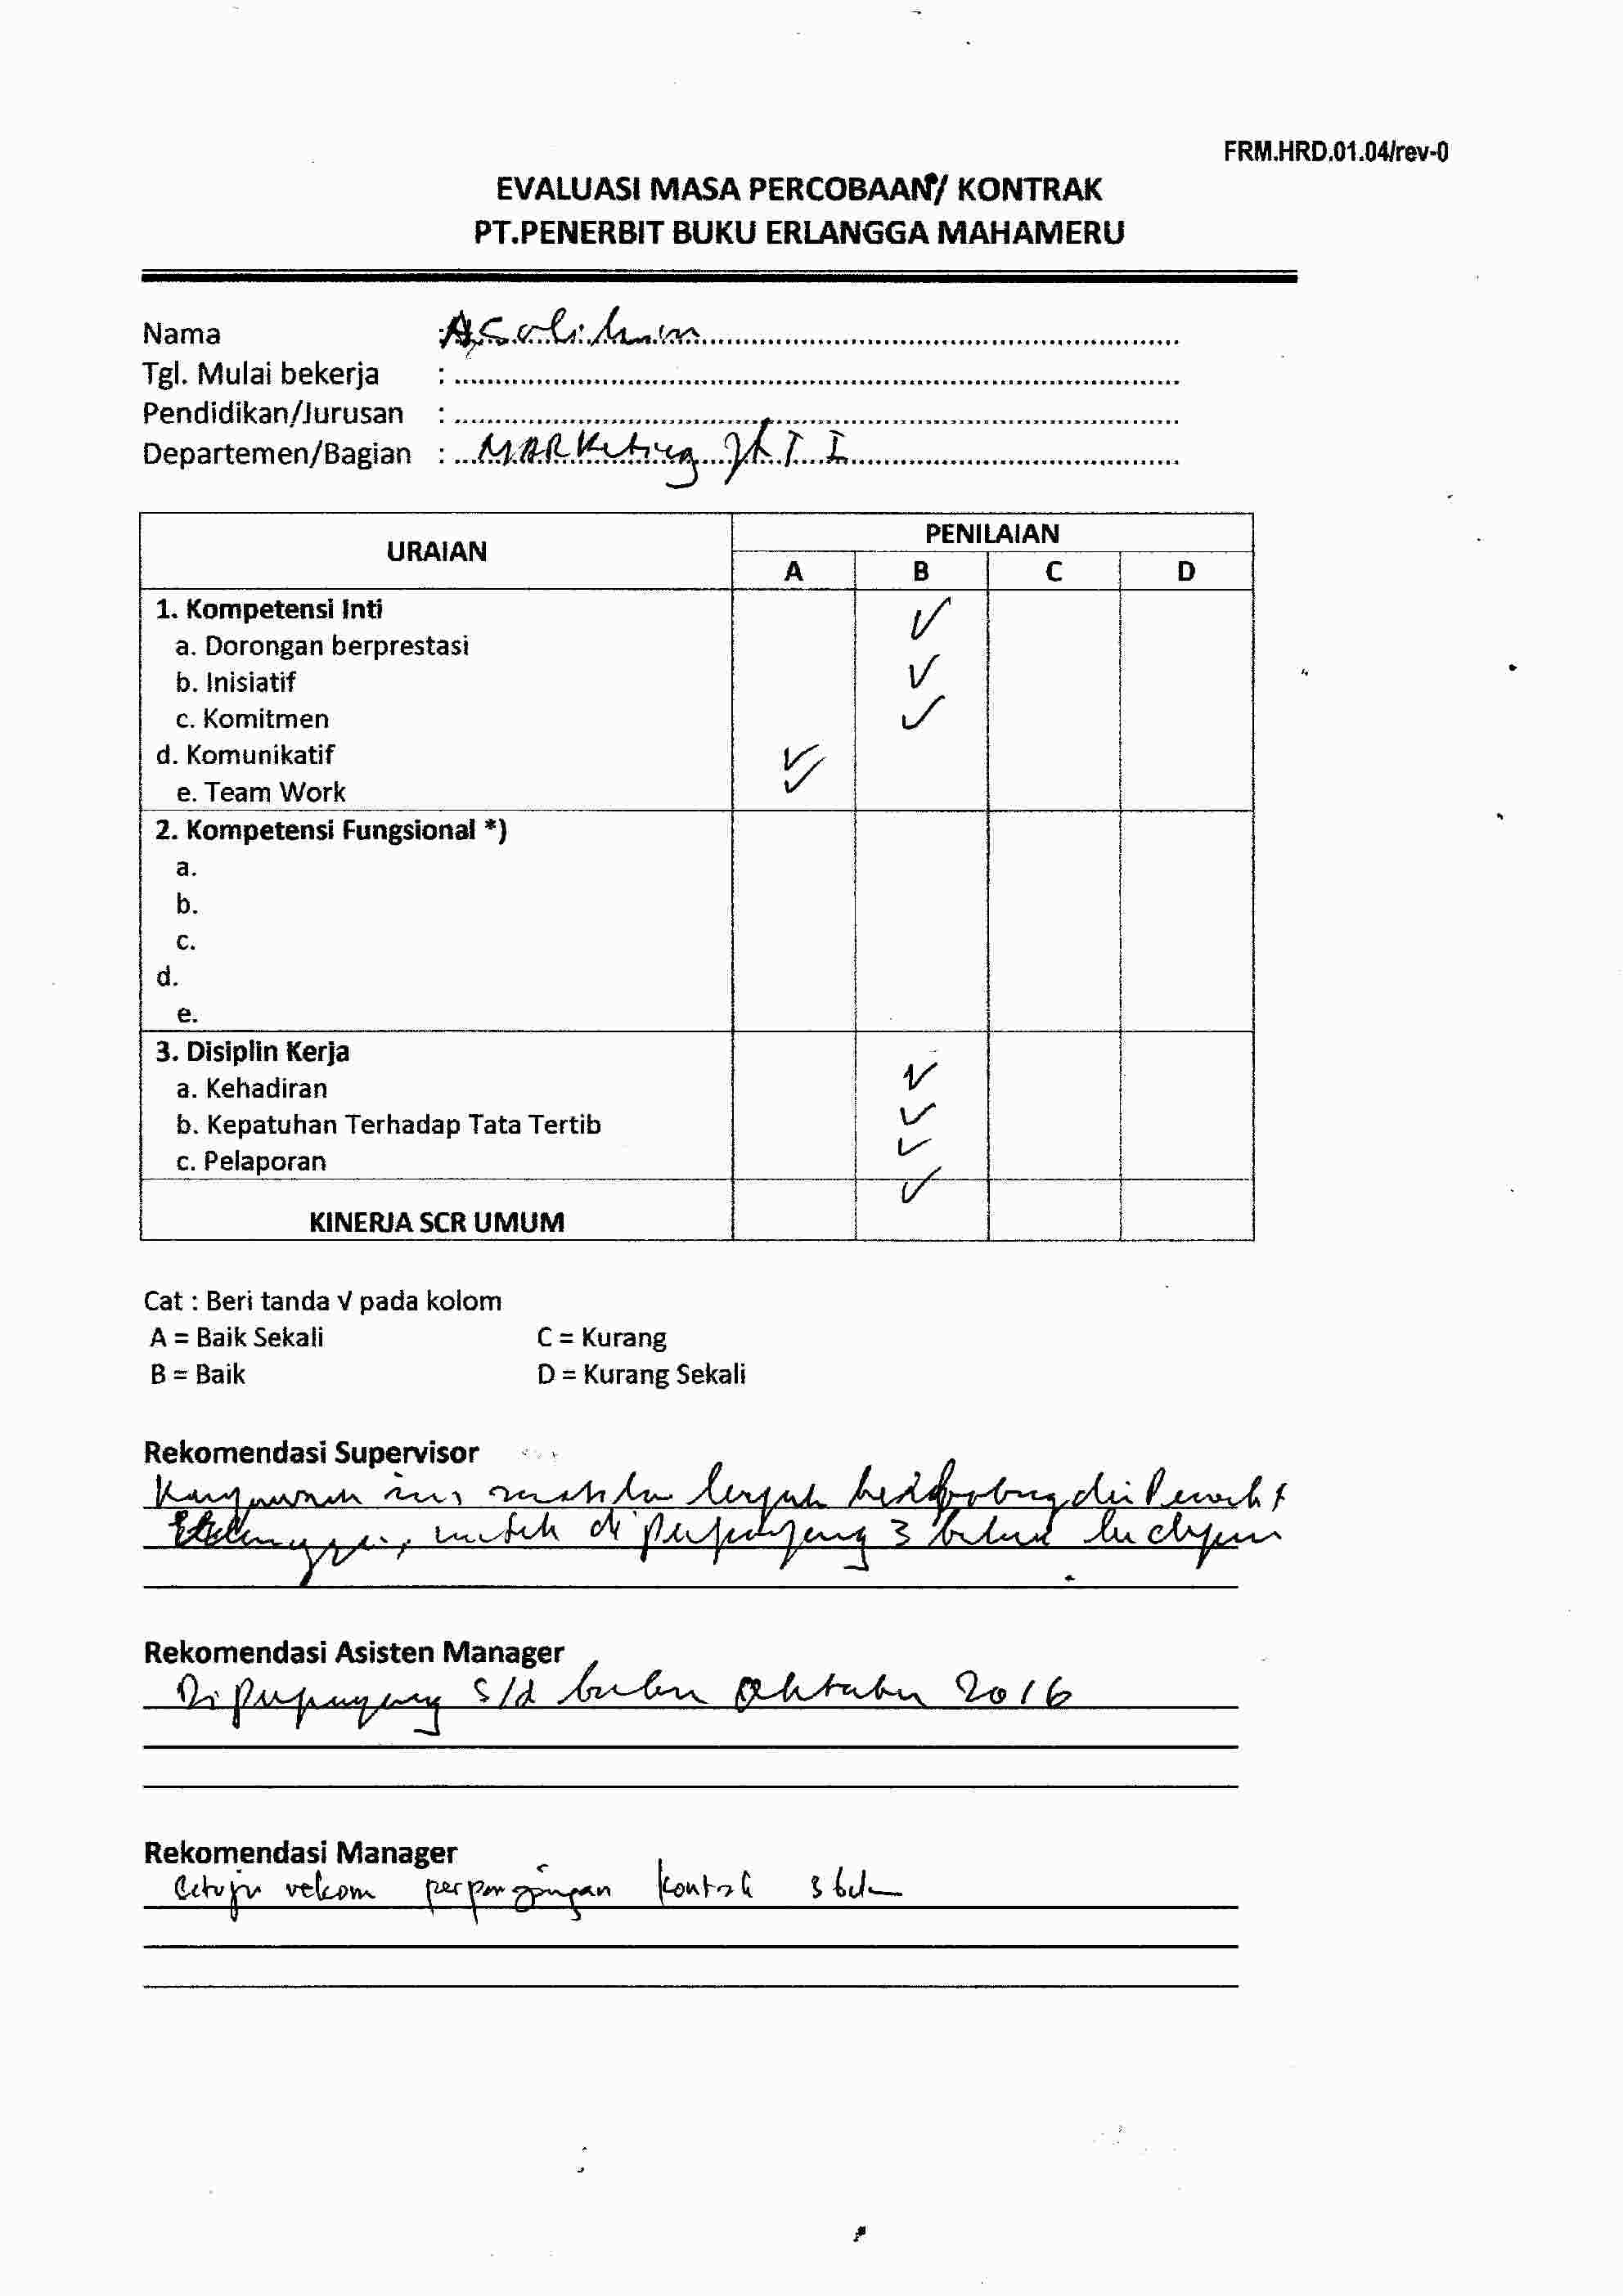 FRM.HRD.01.04/rev-0
EVALUASI MASA PERCOBAAN*/ KONTRAK
PT.PENERBIT BUKU ERLANGGA MAHAMERU
Nama : A, Solihin
Tgl. Mulai bekerja :
Pendidikan/Jurusan :
Departemen/Bagian : MARKeting JKT I
URAIAN PENILAIAN
A B C D
1. Kompetensi Inti √
a. Dorongan berprestasi
b. Inisiatif √
c. Komitmen √
d. Komunikatif √
e. Team Work √
2. Kompetensi Fungsional *)
a.
b.
c.
d.
e.
3. Disiplin Kerja
a. Kehadiran √
b. Kepatuhan Terhadap Tata Tertib √
c. Pelaporan √
KINERJA SCR UMUM √
Cat : Beri tanda √ pada kolom
A = Baik Sekali C = Kurang
B = Baik D = Kurang Sekali
Rekomendasi Supervisor
Karyawan ini layak di Penerbit
Erlangga, untuk di perpanjang 3 bulan ke depan
Rekomendasi Asisten Manager
Di perpanjang s/d bulan Oktober 2016
Rekomendasi Manager
Setuju rekom perpanjangan kontrak 3 bln